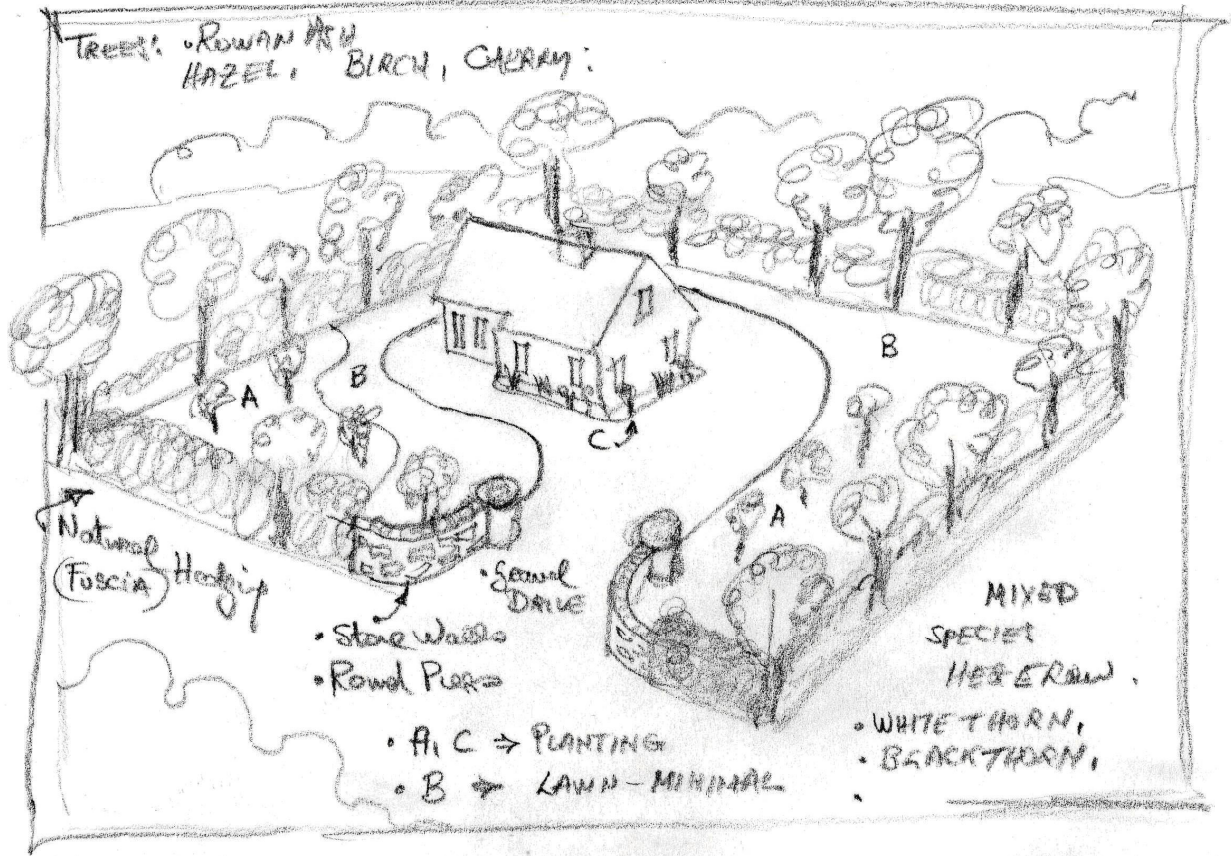 TREES: • ROWAN ASH
HAZEL, BIRCH, CHERRY:
B
A
B
C
A
Natural Hedging
(FUSCIA)
• Gravel
DRIVE
• Stone Walls
• Round Piers
MIXED
SPECIES
HEGEROW.
• WHITETHORN,
• BLACKTHORN,
• A, C → PLANTING
• B → LAWN - MINIMAL